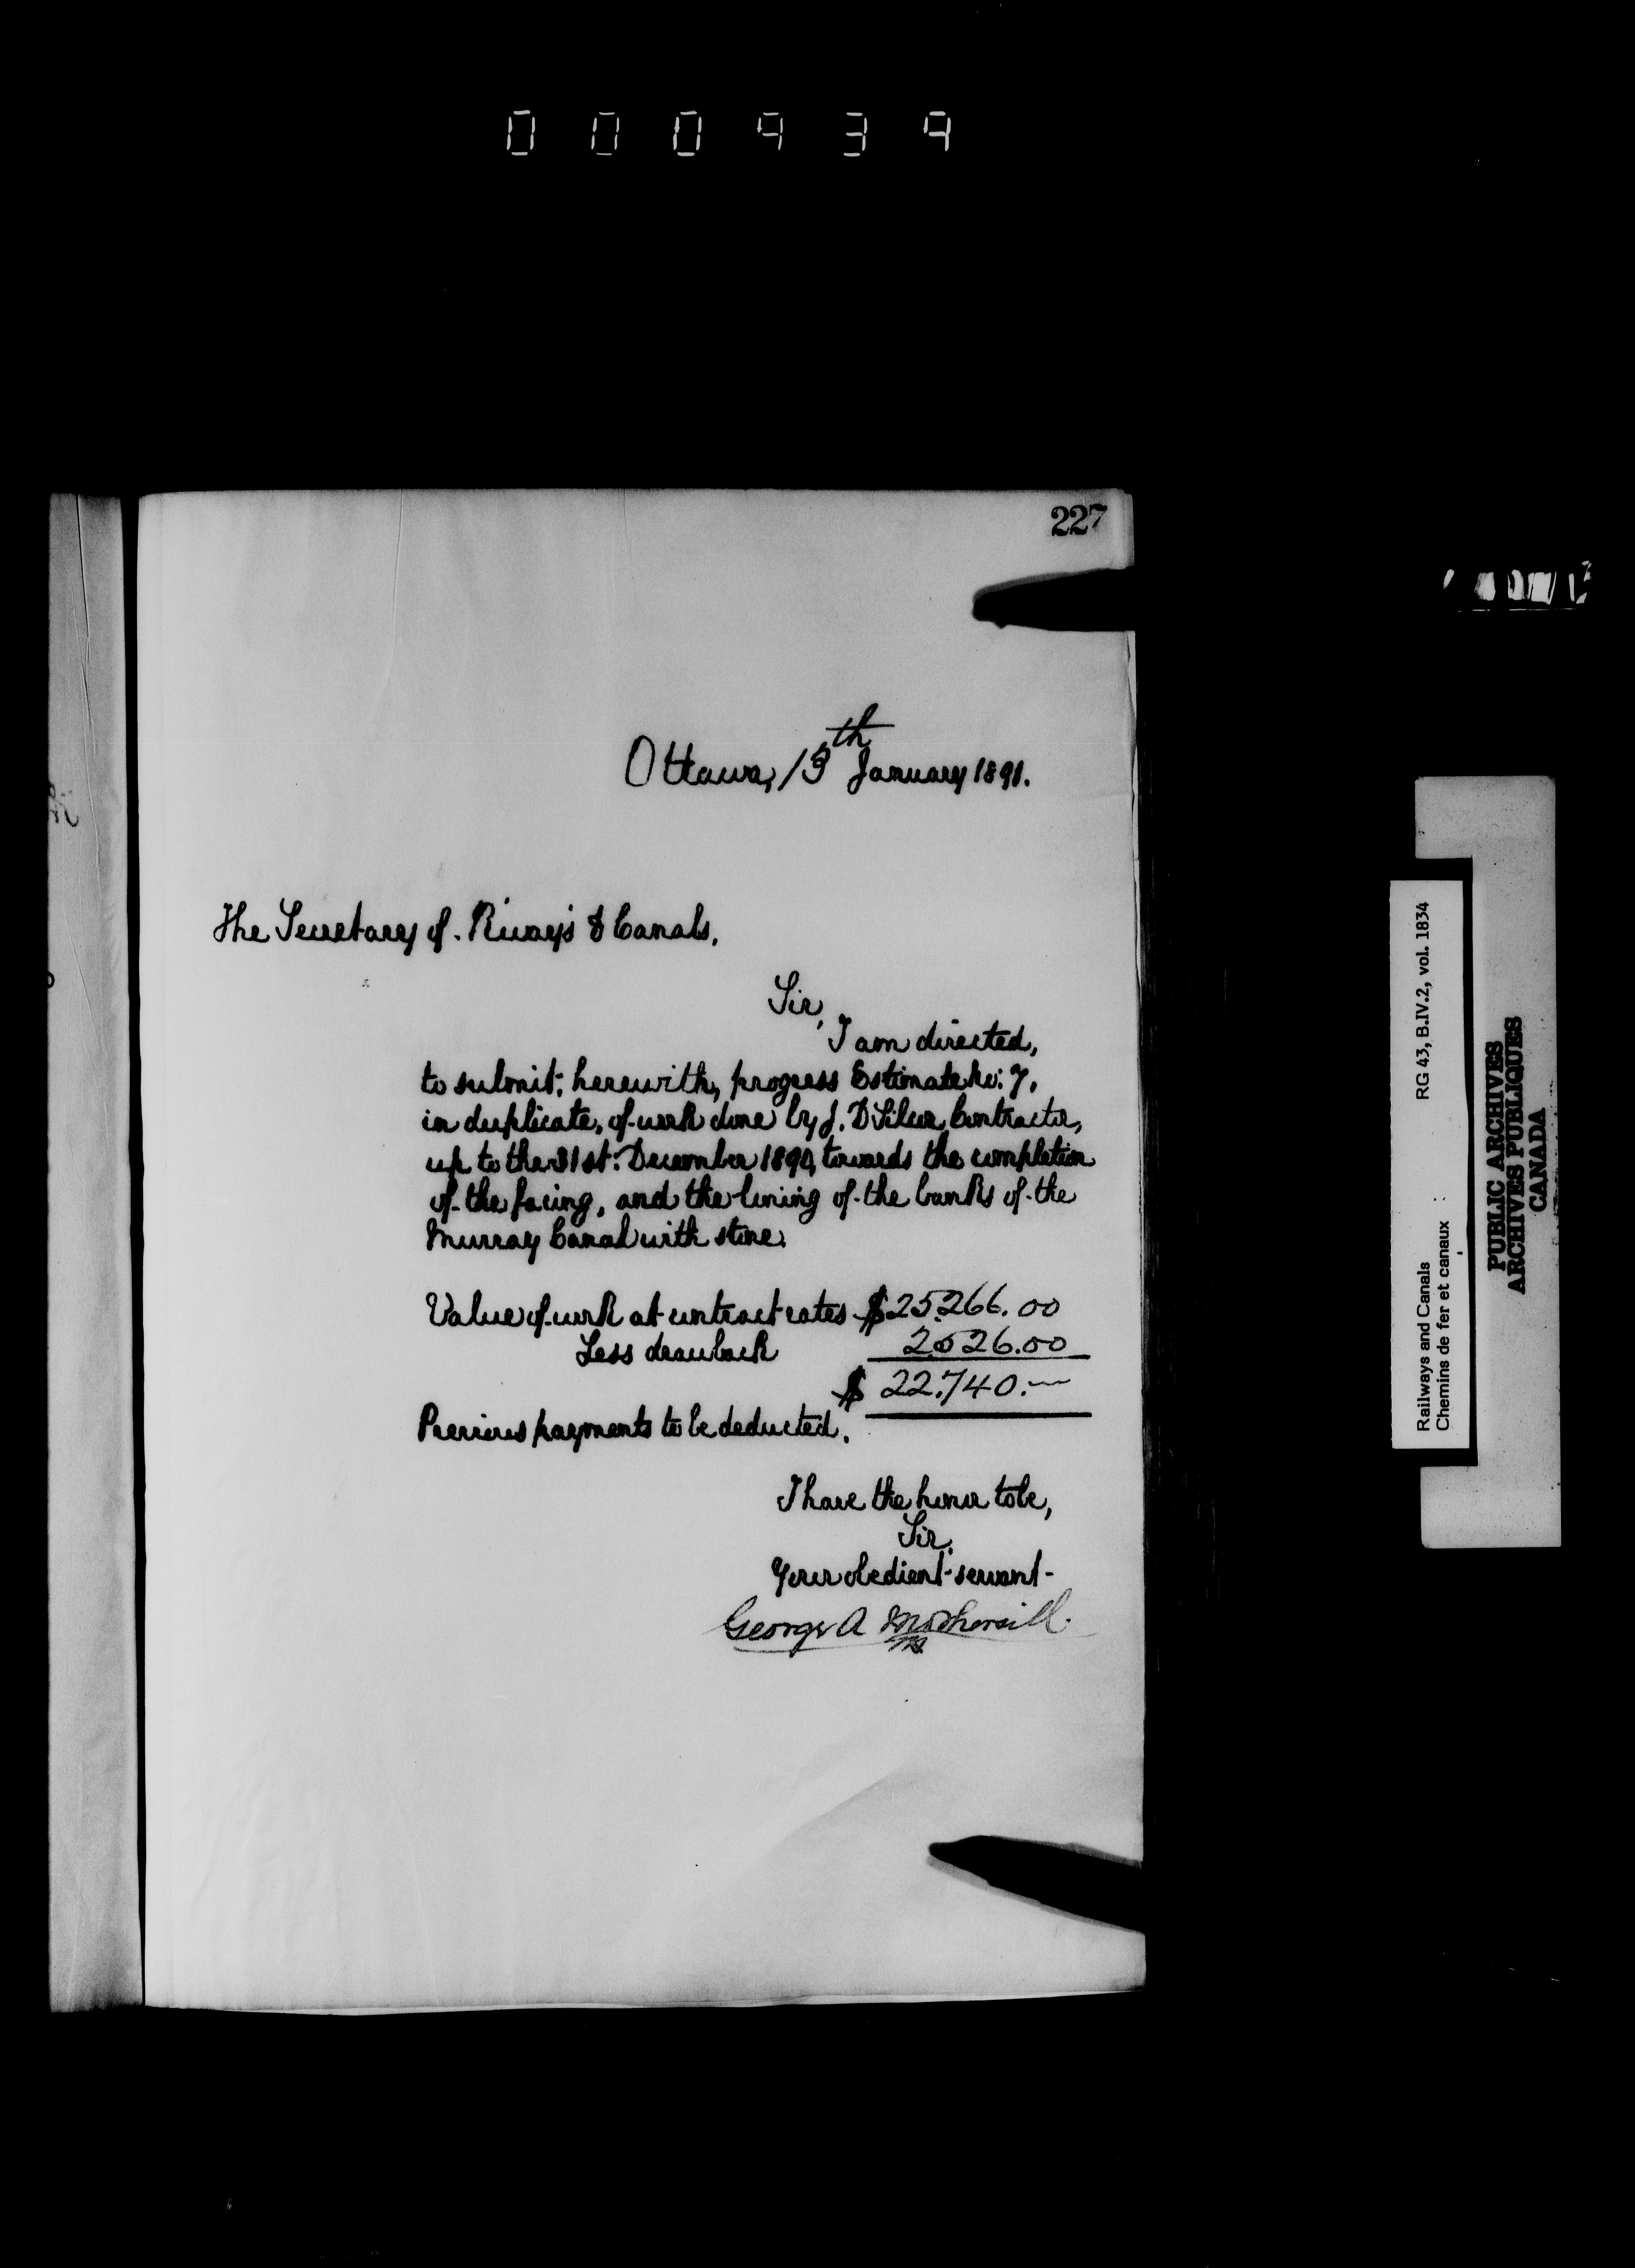 000939
227
Ottawa, 13th January 1891.
The Secretary of R'ways & Canals.
Sir,
I am directed,
to submit, herewith, progress Estimate No: 7,
in duplicate, of work done by J. D Silcox Contractor,
up to the 31st: December 1890, towards the completion
of the facing, and the lining of the banks of the
Murray Canal with stone.
Value of work at contract rates $25,266.00
Less drawback 2,526.00
$ 22,740.—
Previous payments to be deducted.
I have the honor to be,
Sir.
Your obedient servant
George A Mothersill.
Railways and Canals RG 43, B.IV.2, vol. 1834
Chemins de fer et canaux :
PUBLIC ARCHIVES
ARCHIVES PUBLIQUES
CANADA